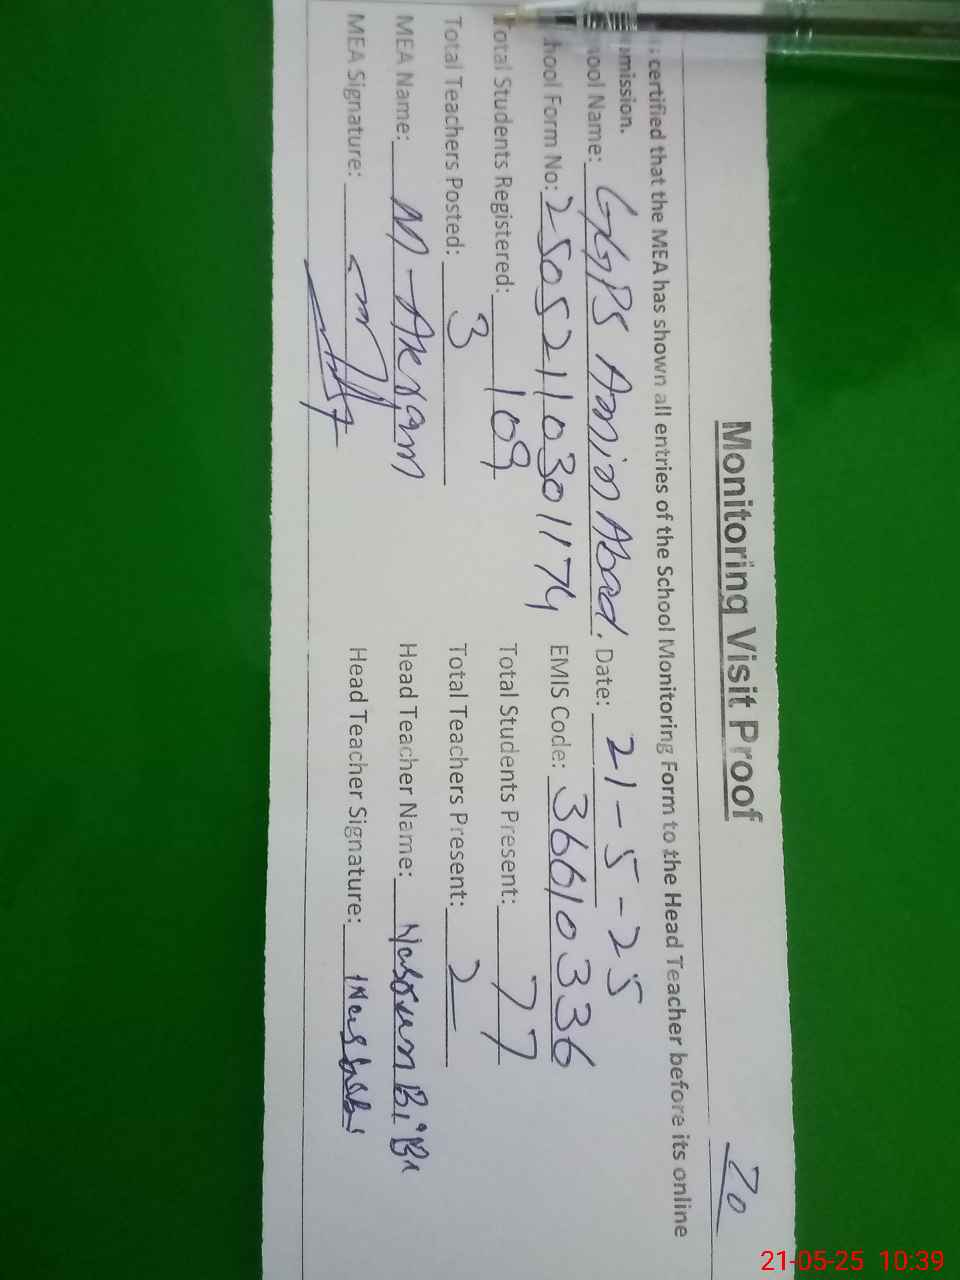 20
Monitoring Visit Proof
certified that the MEA has shown all entries of the School Monitoring Form to the Head Teacher before its online
mission.
ool Name: GGPS Amin Abad. Date: 21-5-25
hool Form No: 2505211030 11174 EMIS Code: 36610336
otal Students Registered: 109 Total Students Present: 77
Total Teachers Posted: 3 Total Teachers Present: 2
MEA Name: M-Akram Head Teacher Name: Bi Bi
MEA Signature: Head Teacher Signature:
21-05-25 10:39